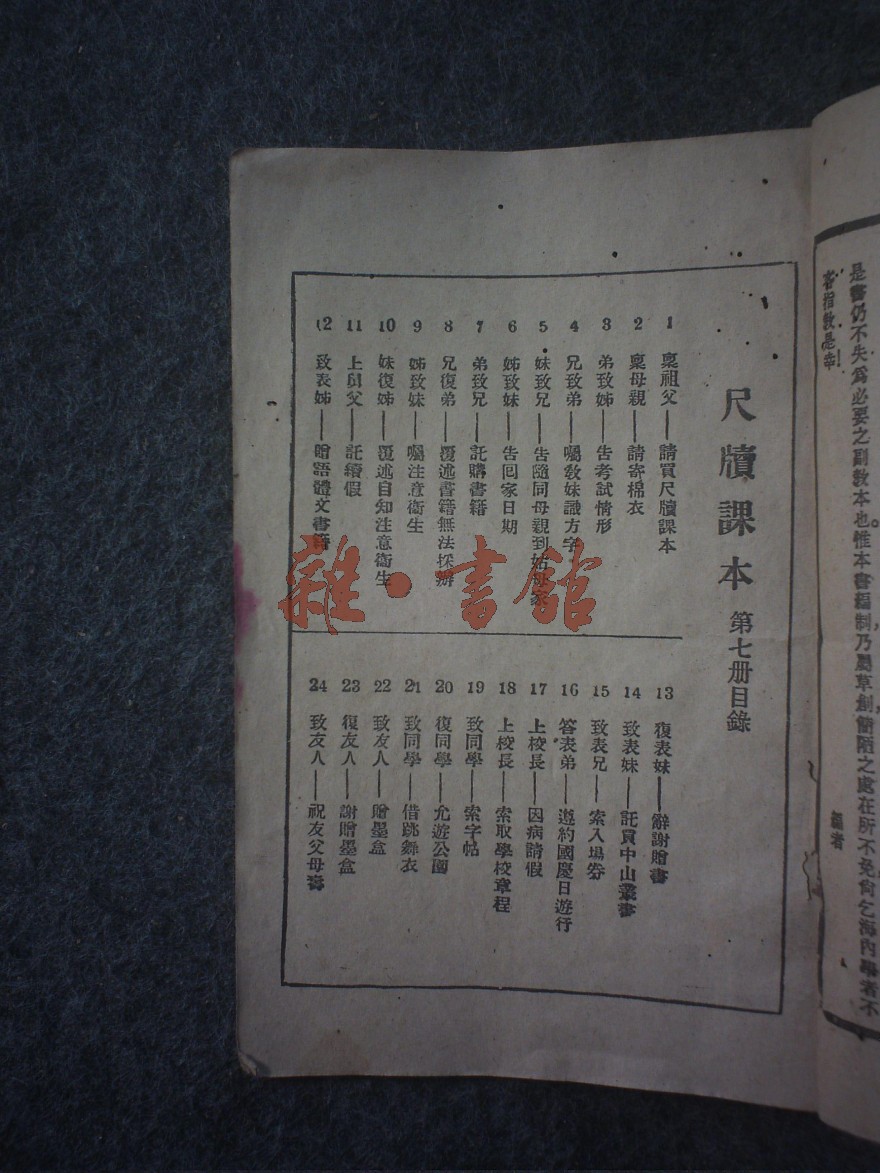 是書仍不失為必要之副教本也。惟本書編制,乃屬草創,簡陋之處在所不免,尚乞海內學者不
吝指教是幸
編者
尺牘課本 第七册目錄
1 稟祖父——請買尺牘課本
2 稟母親——請寄棉衣
3 弟致姊——告考試情形
4 兄致弟——囑教妹識方字
5 妹致兄——告隨同母親到姑母家
6 姊致妹——告囘家日期
7 弟致兄——託購書籍
8 兄復弟——覆述書籍無法採辦
9 姊致妹——囑注意衞生
10 妹復姊——覆述自知注意衞生
11 上舅父——託續假
12 致表姊——贈語體文書籍
13 復表妹——辭謝贈書
14 致表妹——託買中山叢書
15 致表兄——索入場券
16 答表弟——邀約國慶日遊行
17 上校長——因病請假
18 上校長——索取學校章程
19 致同學——索字帖
20 復同學——允遊公園
21 致同學——借跳舞衣
22 致友人——贈墨盒
23 復友人——謝贈墨盒
24 致友人——祝友父母壽
雜·書館